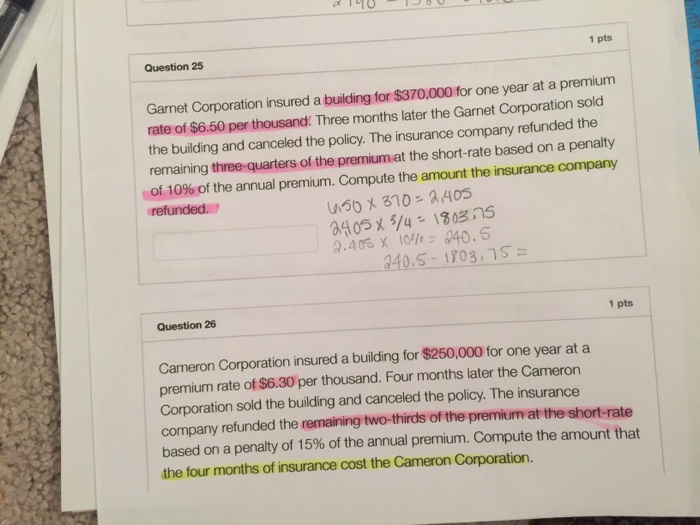 1 pts
Question 25
Garnet Corporation insured a building for $370,000 for one year at a premium
rate of $6.50 per thousand. Three months later the Garnet Corporation sold
the building and canceled the policy. The insurance company refunded the
remaining three-quarters of the premium at the short-rate based on a penalty
of 10% of the annual premium. Compute the amount the insurance company
refunded.
6.50 X 370 = 2,405
2405 X 3/4 = 1803.75
2.405 X 10% = 240.5
240.5 - 1803.75 =
1 pts
Question 26
Cameron Corporation insured a building for $250,000 for one year at a
premium rate of $6.30 per thousand. Four months later the Cameron
Corporation sold the building and canceled the policy. The insurance
company refunded the remaining two-thirds of the premium at the short-rate
based on a penalty of 15% of the annual premium. Compute the amount that
the four months of insurance cost the Cameron Corporation.